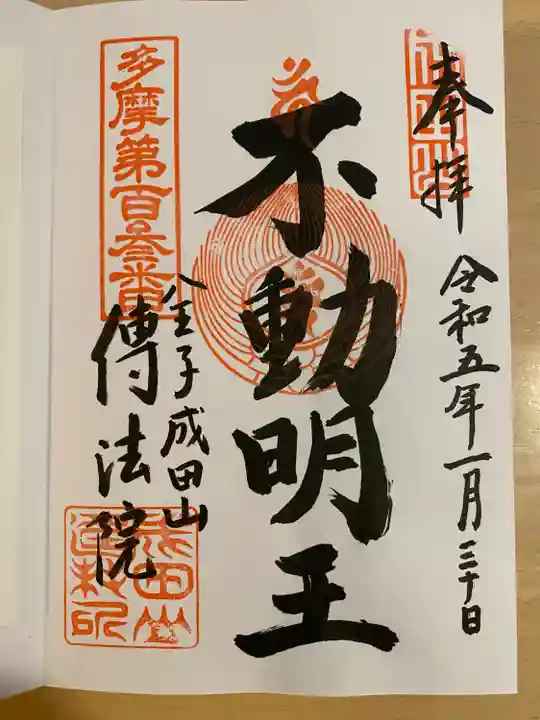 奉拝
令和五年一月三十日
不動明王
多摩第百叁番
金子成田山
傳法院